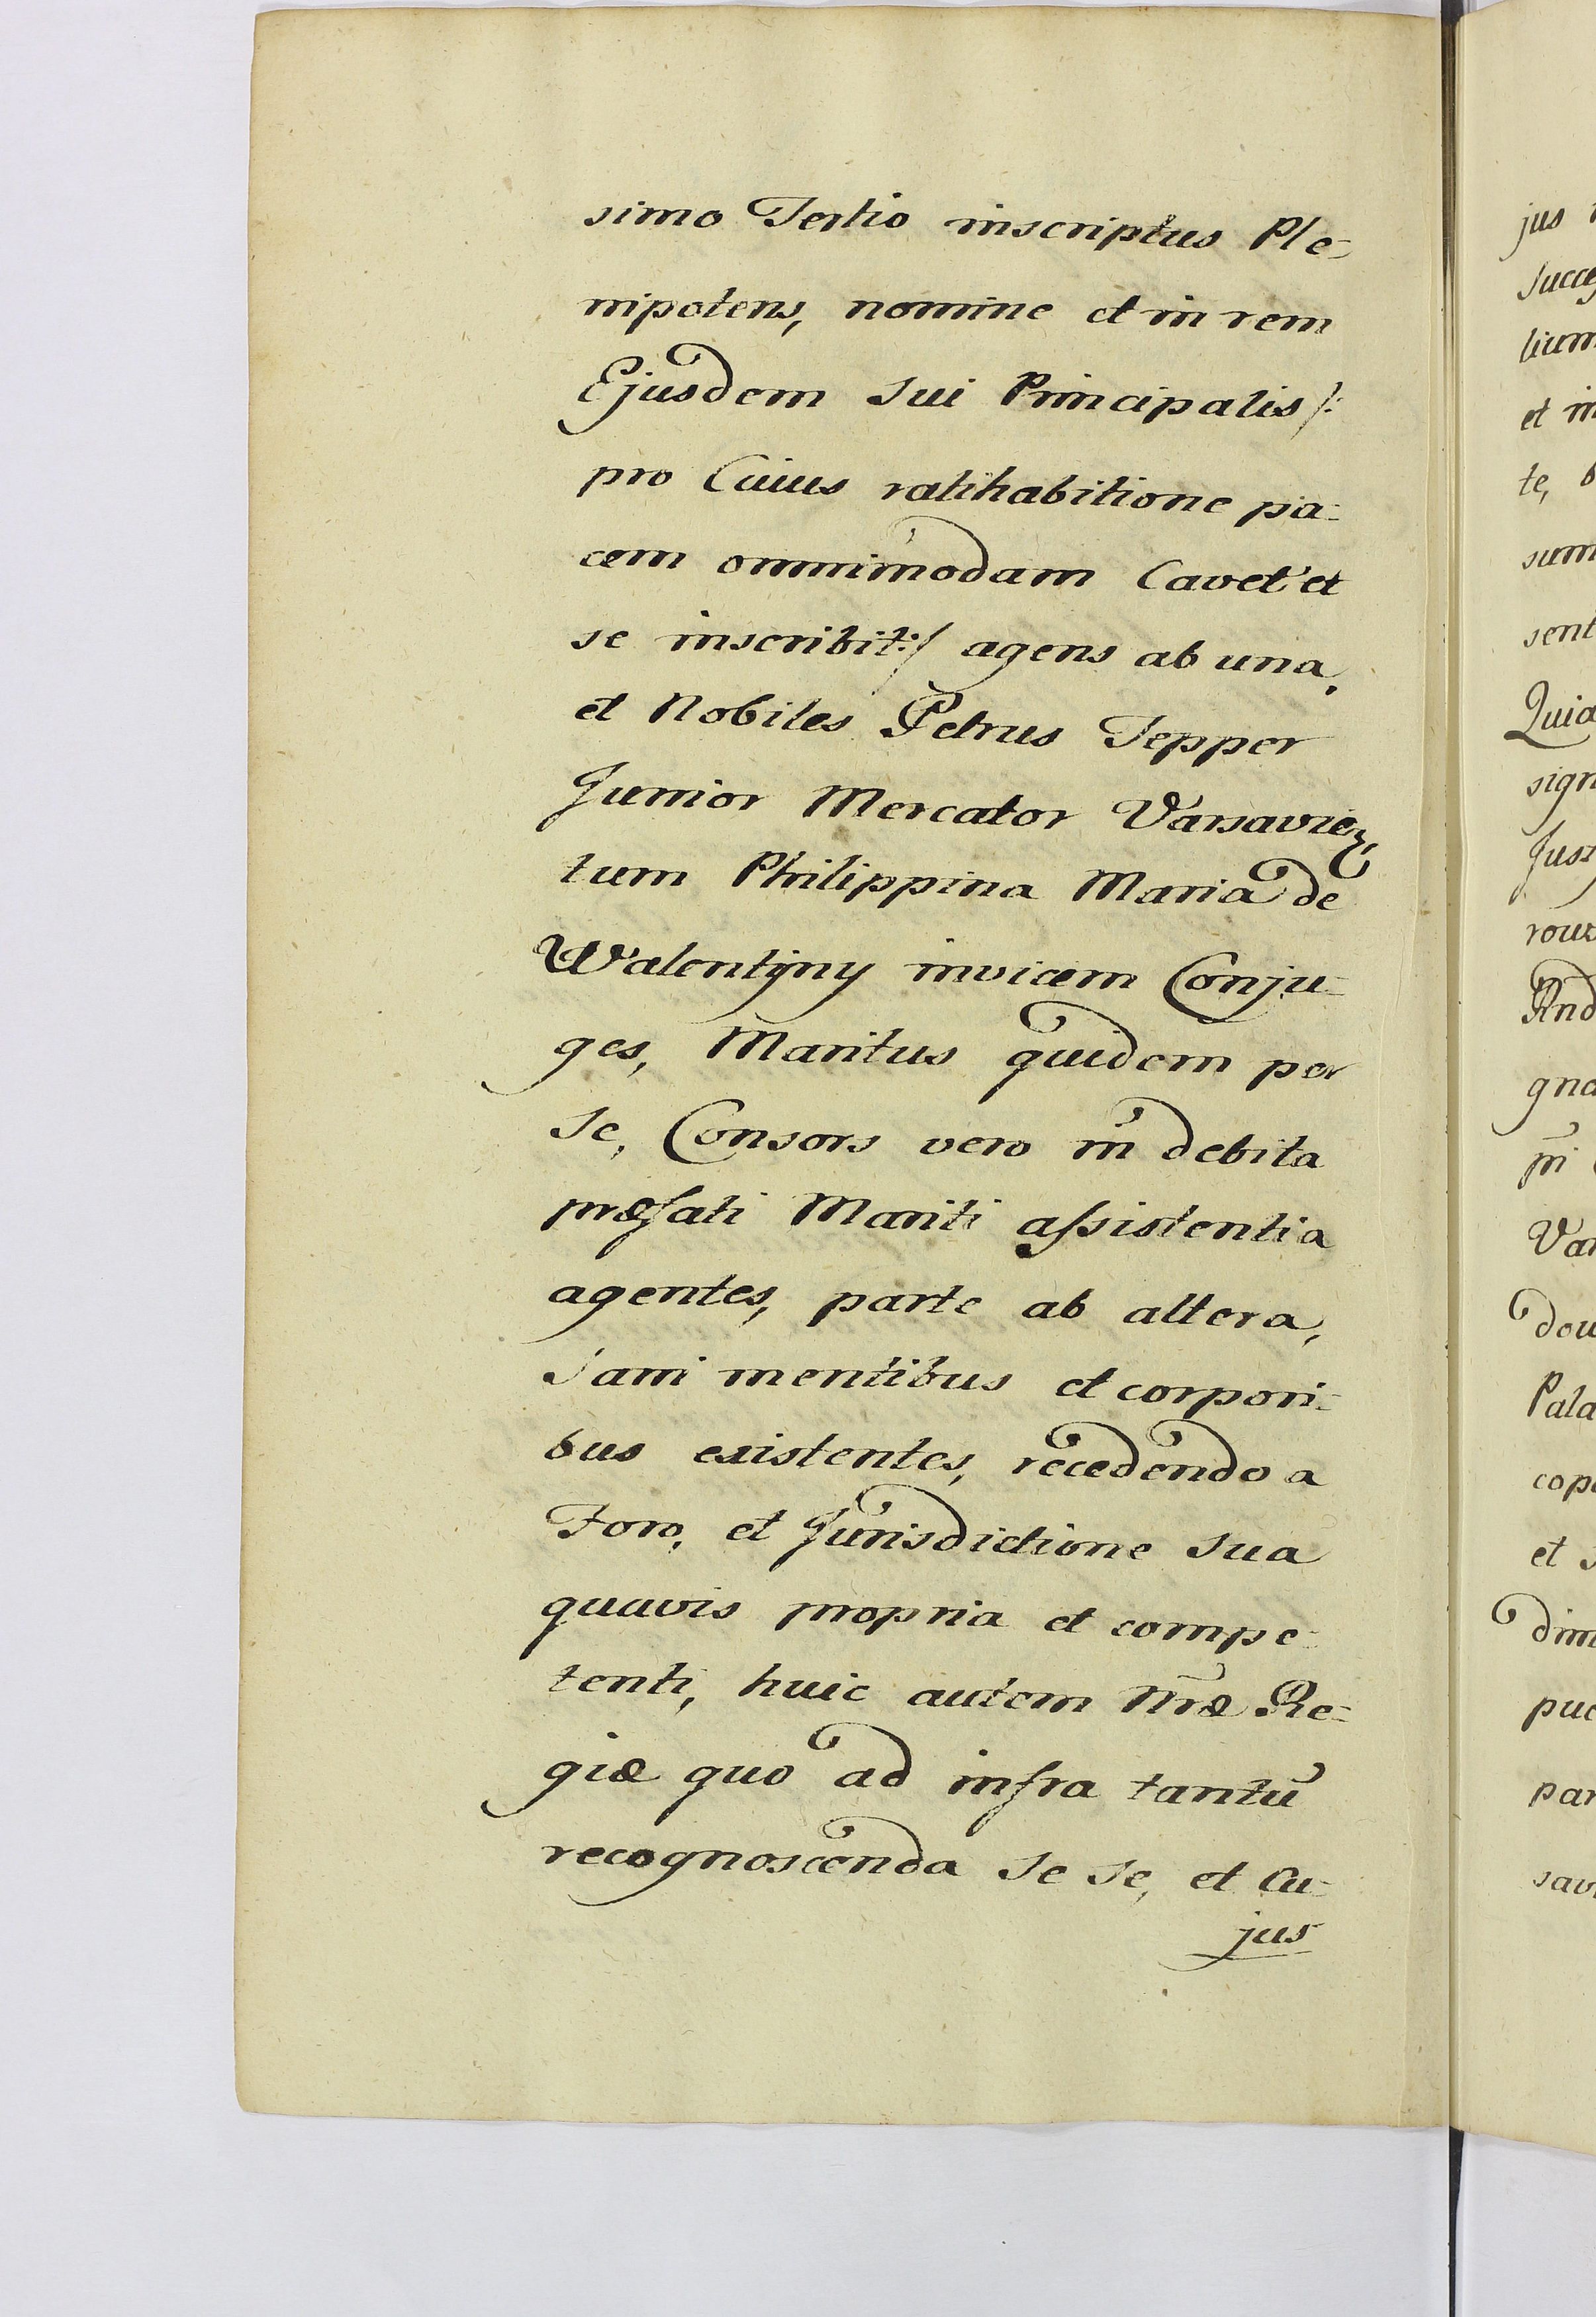 simo Tertio inscriptus Ple-
nipotens, nomine et in rem
Ejusdem Sui Principalis /:
pro Cuius ratihabitione pa-
cem omnimodam Cavet et
se inscribit :/ agens ab una,
et Nobiles Petrus Tepper
Junior Mercator
tum Philippina Maria de
Walentijny invicem Conju-
ges, Maritus quidem per
Se, Consors vero in debita
præfati Mariti assistentia
agentes, parte ab altera,
Sani mentibus et corpori-
bus existentes, recedendo a
Foro, et Jurisdictione Sua
quavis propria et compe-
tenti, huic autem Nræ Re-
giæ quo ad infra tantū
recognoscenda Se Se, et Cu-
jus
jus
Succes
lium
et in
te, b
sum
sent
Quia
sign
Juss
rour
And
gna
Var
dou
Pala
cop
et
dim
puc
par
sav